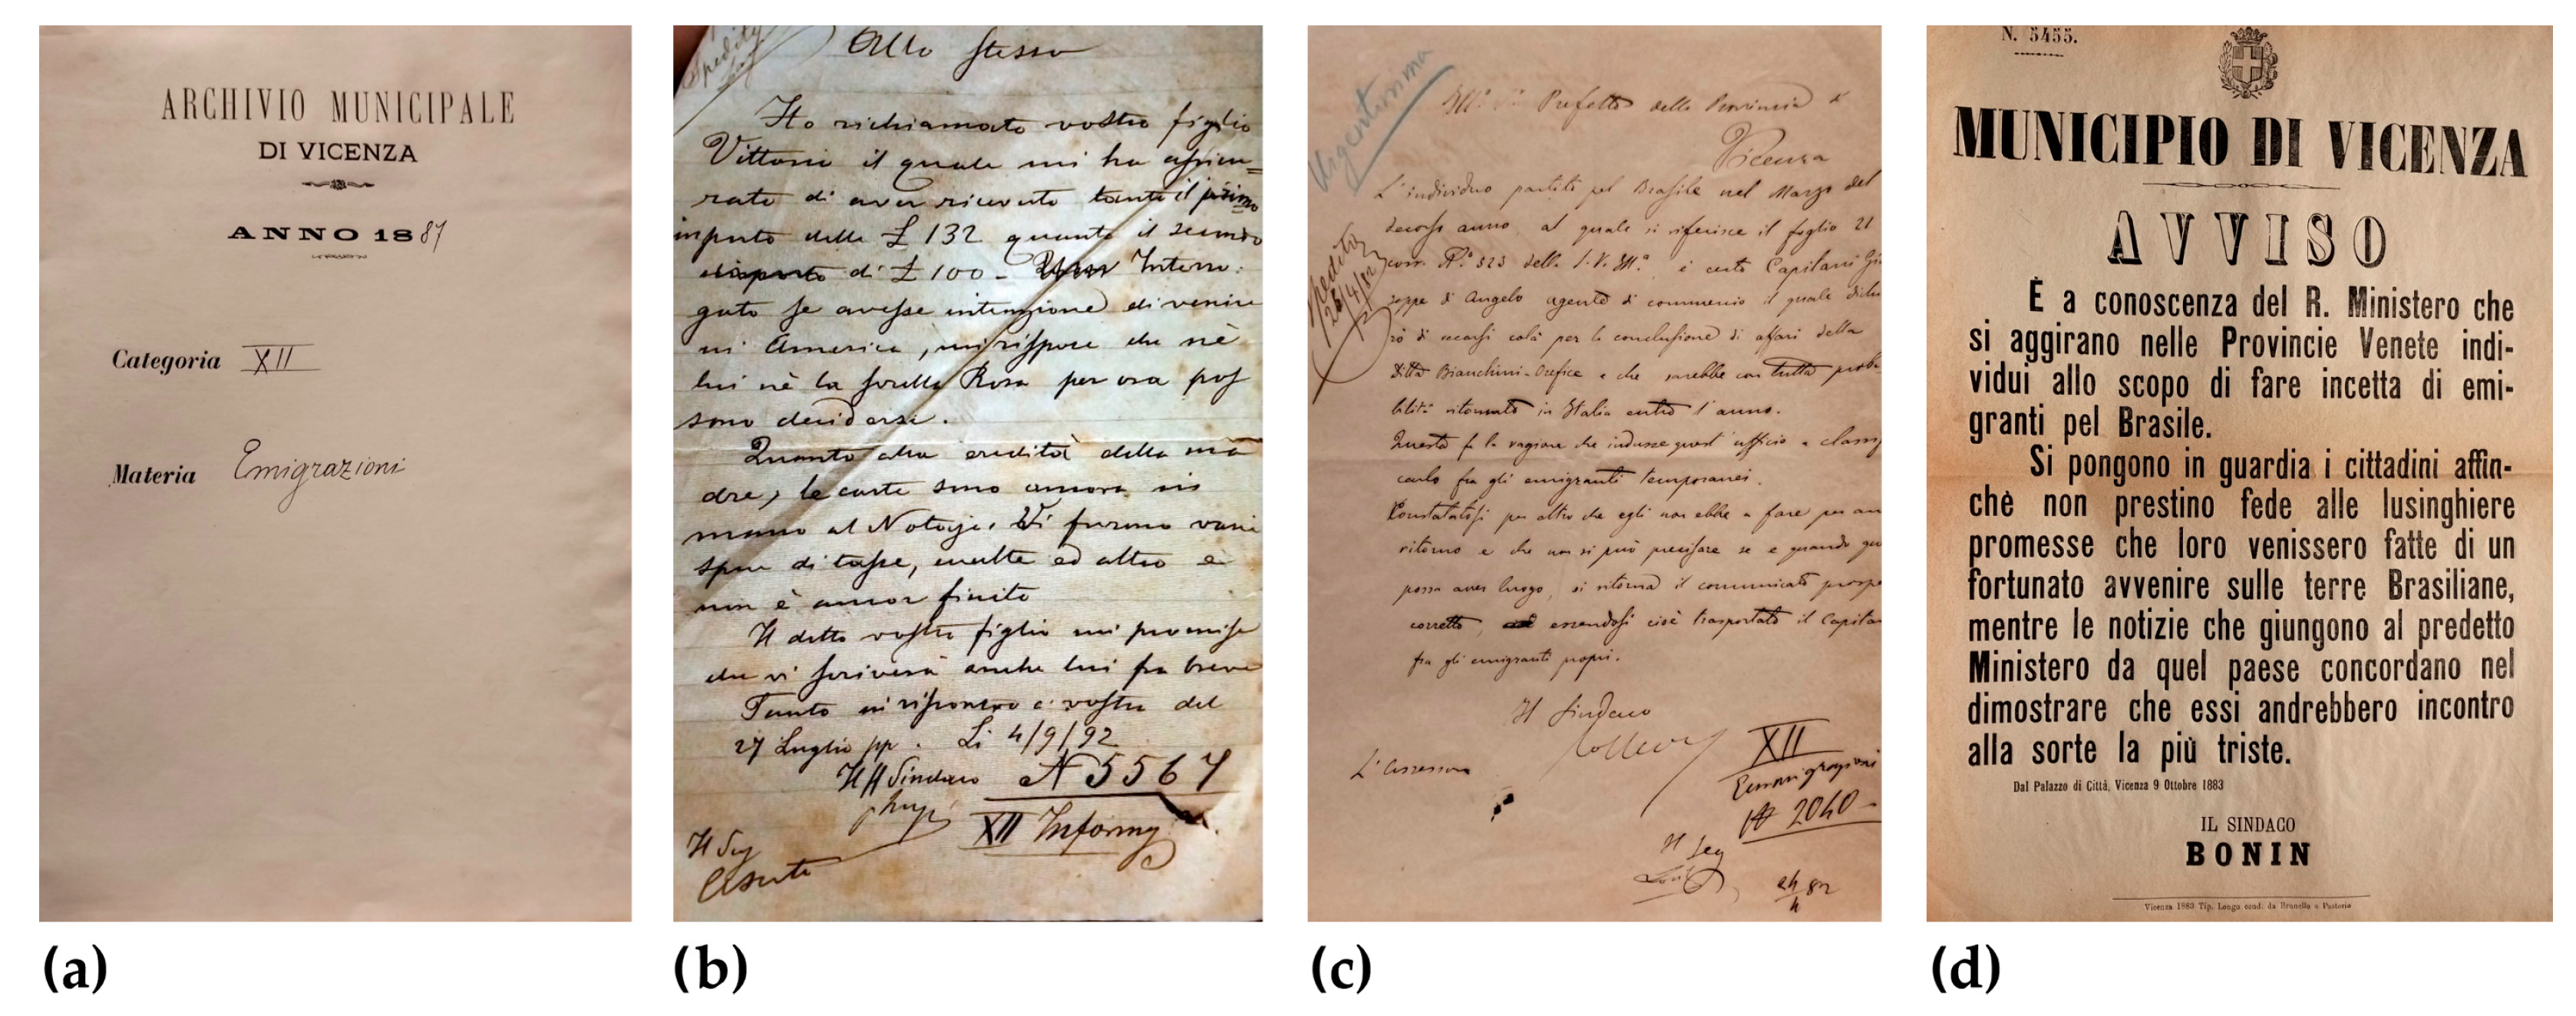 ARCHIVIO MUNICIPALE
DI VICENZA
ANNO 1887
Categoria XII
Materia Emigrazioni
(a)
Spedita
Allo stesso
Ho richiamato vostro figlio
Vittorio il quale mi ha assicu=
rato di aver ricevuto tanto il primo
importo delle £ 132 quanto il secondo
di £ 100 - Interro:
gato se avesse intenzione di venire
in America, mi rispose che nè
lui nè la sorella Rosa per ora pos
sono decidersi.
Quanto alla eredità della ma
dre, le carte sono ancora in
mano al Notajo. Vi furono varie
spese di tasse, multe ed altro e
non è ancor finito
Il detto vostro figlio mi promise
che vi scriverà anche lui fra breve
Tanto in riscontro a vostra del
27 Luglio pp. Li 4/9/92
Il ff Sindaco N 5567
XII Informaz
Il Seg
(b)
Urgentissima
Ill. Prefetto della Provincia di
Vicenza
L'individuo partito pel Brasile nel Marzo del
decorso anno, al quale si riferisce il foglio 21
corr. N.° 523 della S. V. Ill.a è certo Capitani Giu
seppe di Angelo agente di commercio il quale dichia
rò di recarsi colà per la conclusione di affari della
Ditta Bianchini-Orefice e che sarebbe con tutta proba
bilità ritornato in Italia entro l'anno.
Questa fu la ragione che indusse quest'ufficio a classifi
carlo fra gli emigranti temporanei.
Constatatosi per altro che egli non ebbe a fare per an
ritorno e che non si può precisare se e quando
possa aver luogo, si ritorna il comunicato
corretto, essendosi cioè trasportato il Capita
fra gli emigranti propri.
Spedita
26/4/82
Il Sindaco
L'Assessore
XII
Emigrazioni
N 2040
Il Seg
24/4 82
(c)
N. 5455.
MUNICIPIO DI VICENZA
AVVISO
È a conoscenza del R. Ministero che
si aggirano nelle Provincie Venete indi-
vidui allo scopo di fare incetta di emi-
granti pel Brasile.
Si pongono in guardia i cittadini affin-
chè non prestino fede alle lusinghiere
promesse che loro venissero fatte di un
fortunato avvenire sulle terre Brasiliane,
mentre le notizie che giungono al predetto
Ministero da quel paese concordano nel
dimostrare che essi andrebbero incontro
alla sorte la più triste.
Dal Palazzo di Città, Vicenza 9 Ottobre 1883
IL SINDACO
BONIN
Vicenza 1883 Tip. Longo cond. da Brunello e Pastorio
(d)